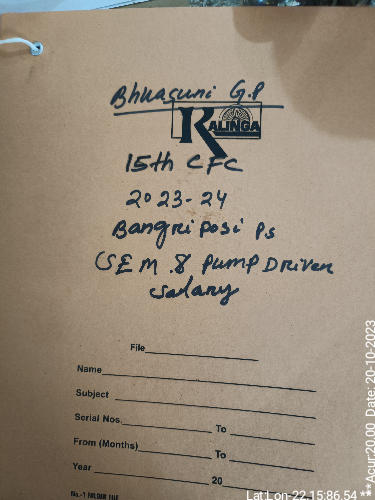 Bhuasuni G.P
KALINGA
15th CFC
2023-24
Bangriposi Ps
SEM & Pump Driver
Salary
File
Name
Subject
Serial Nos. To
From (Months) To
Year 20
No.-1 KALINGA FILE
Lat Lon-22.15:86.54 ***Acur:20.00 Date: 20-10-2023